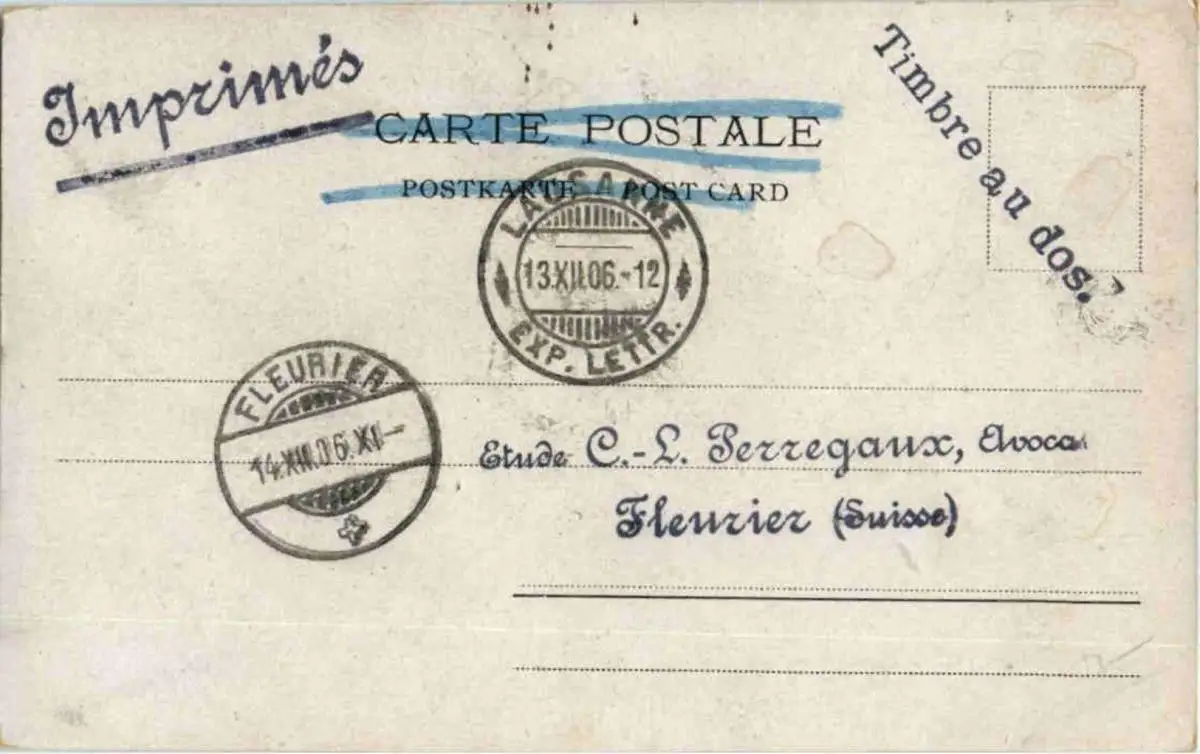 Imprimés
Timbre au dos.
CARTE POSTALE
POSTKARTE POST CARD
LAUSANNE
13.XII.06.-12
EXP. LETTR.
FLEURIER
14.XII.06.XI-
Etude C.-L. Perregaux, Avoca
Fleurier (Suisse)